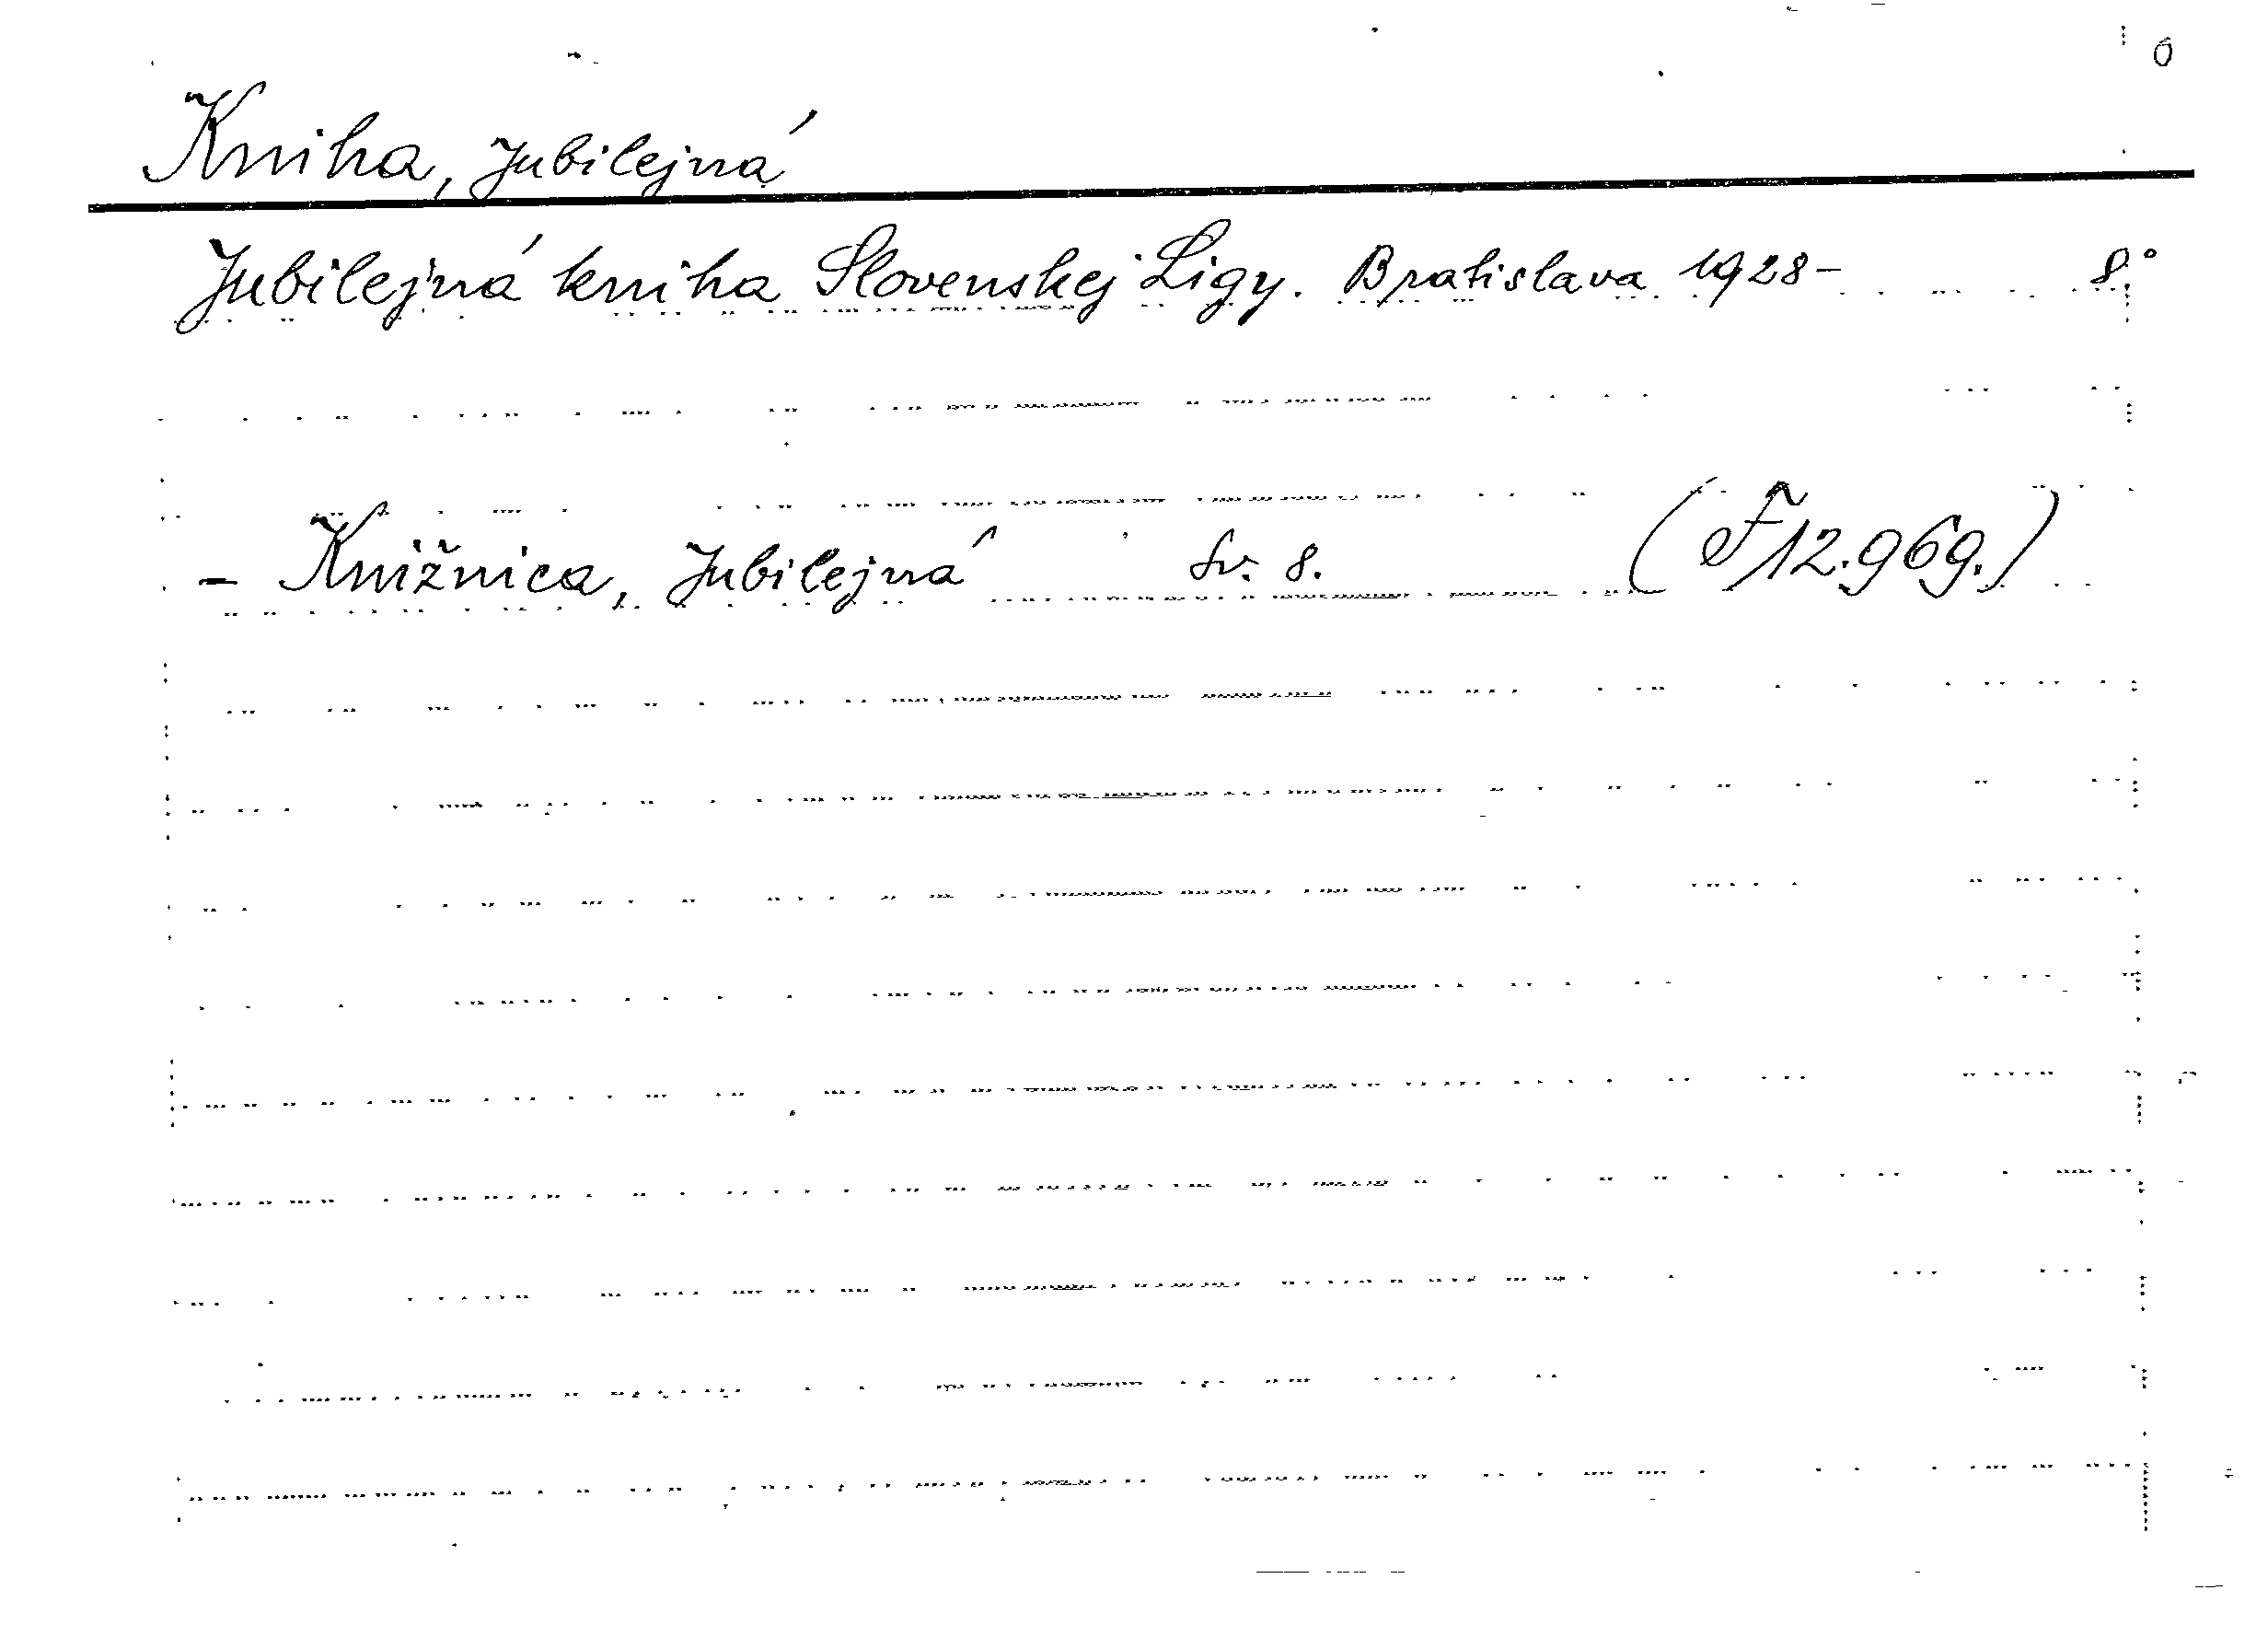 Kniha, Jubilejná
Jubilejná kniha Slovenskej Ligy. Bratislava 1928- 8°
- Knižnica, Jubilejná Sv. 8. (F 12.969.)